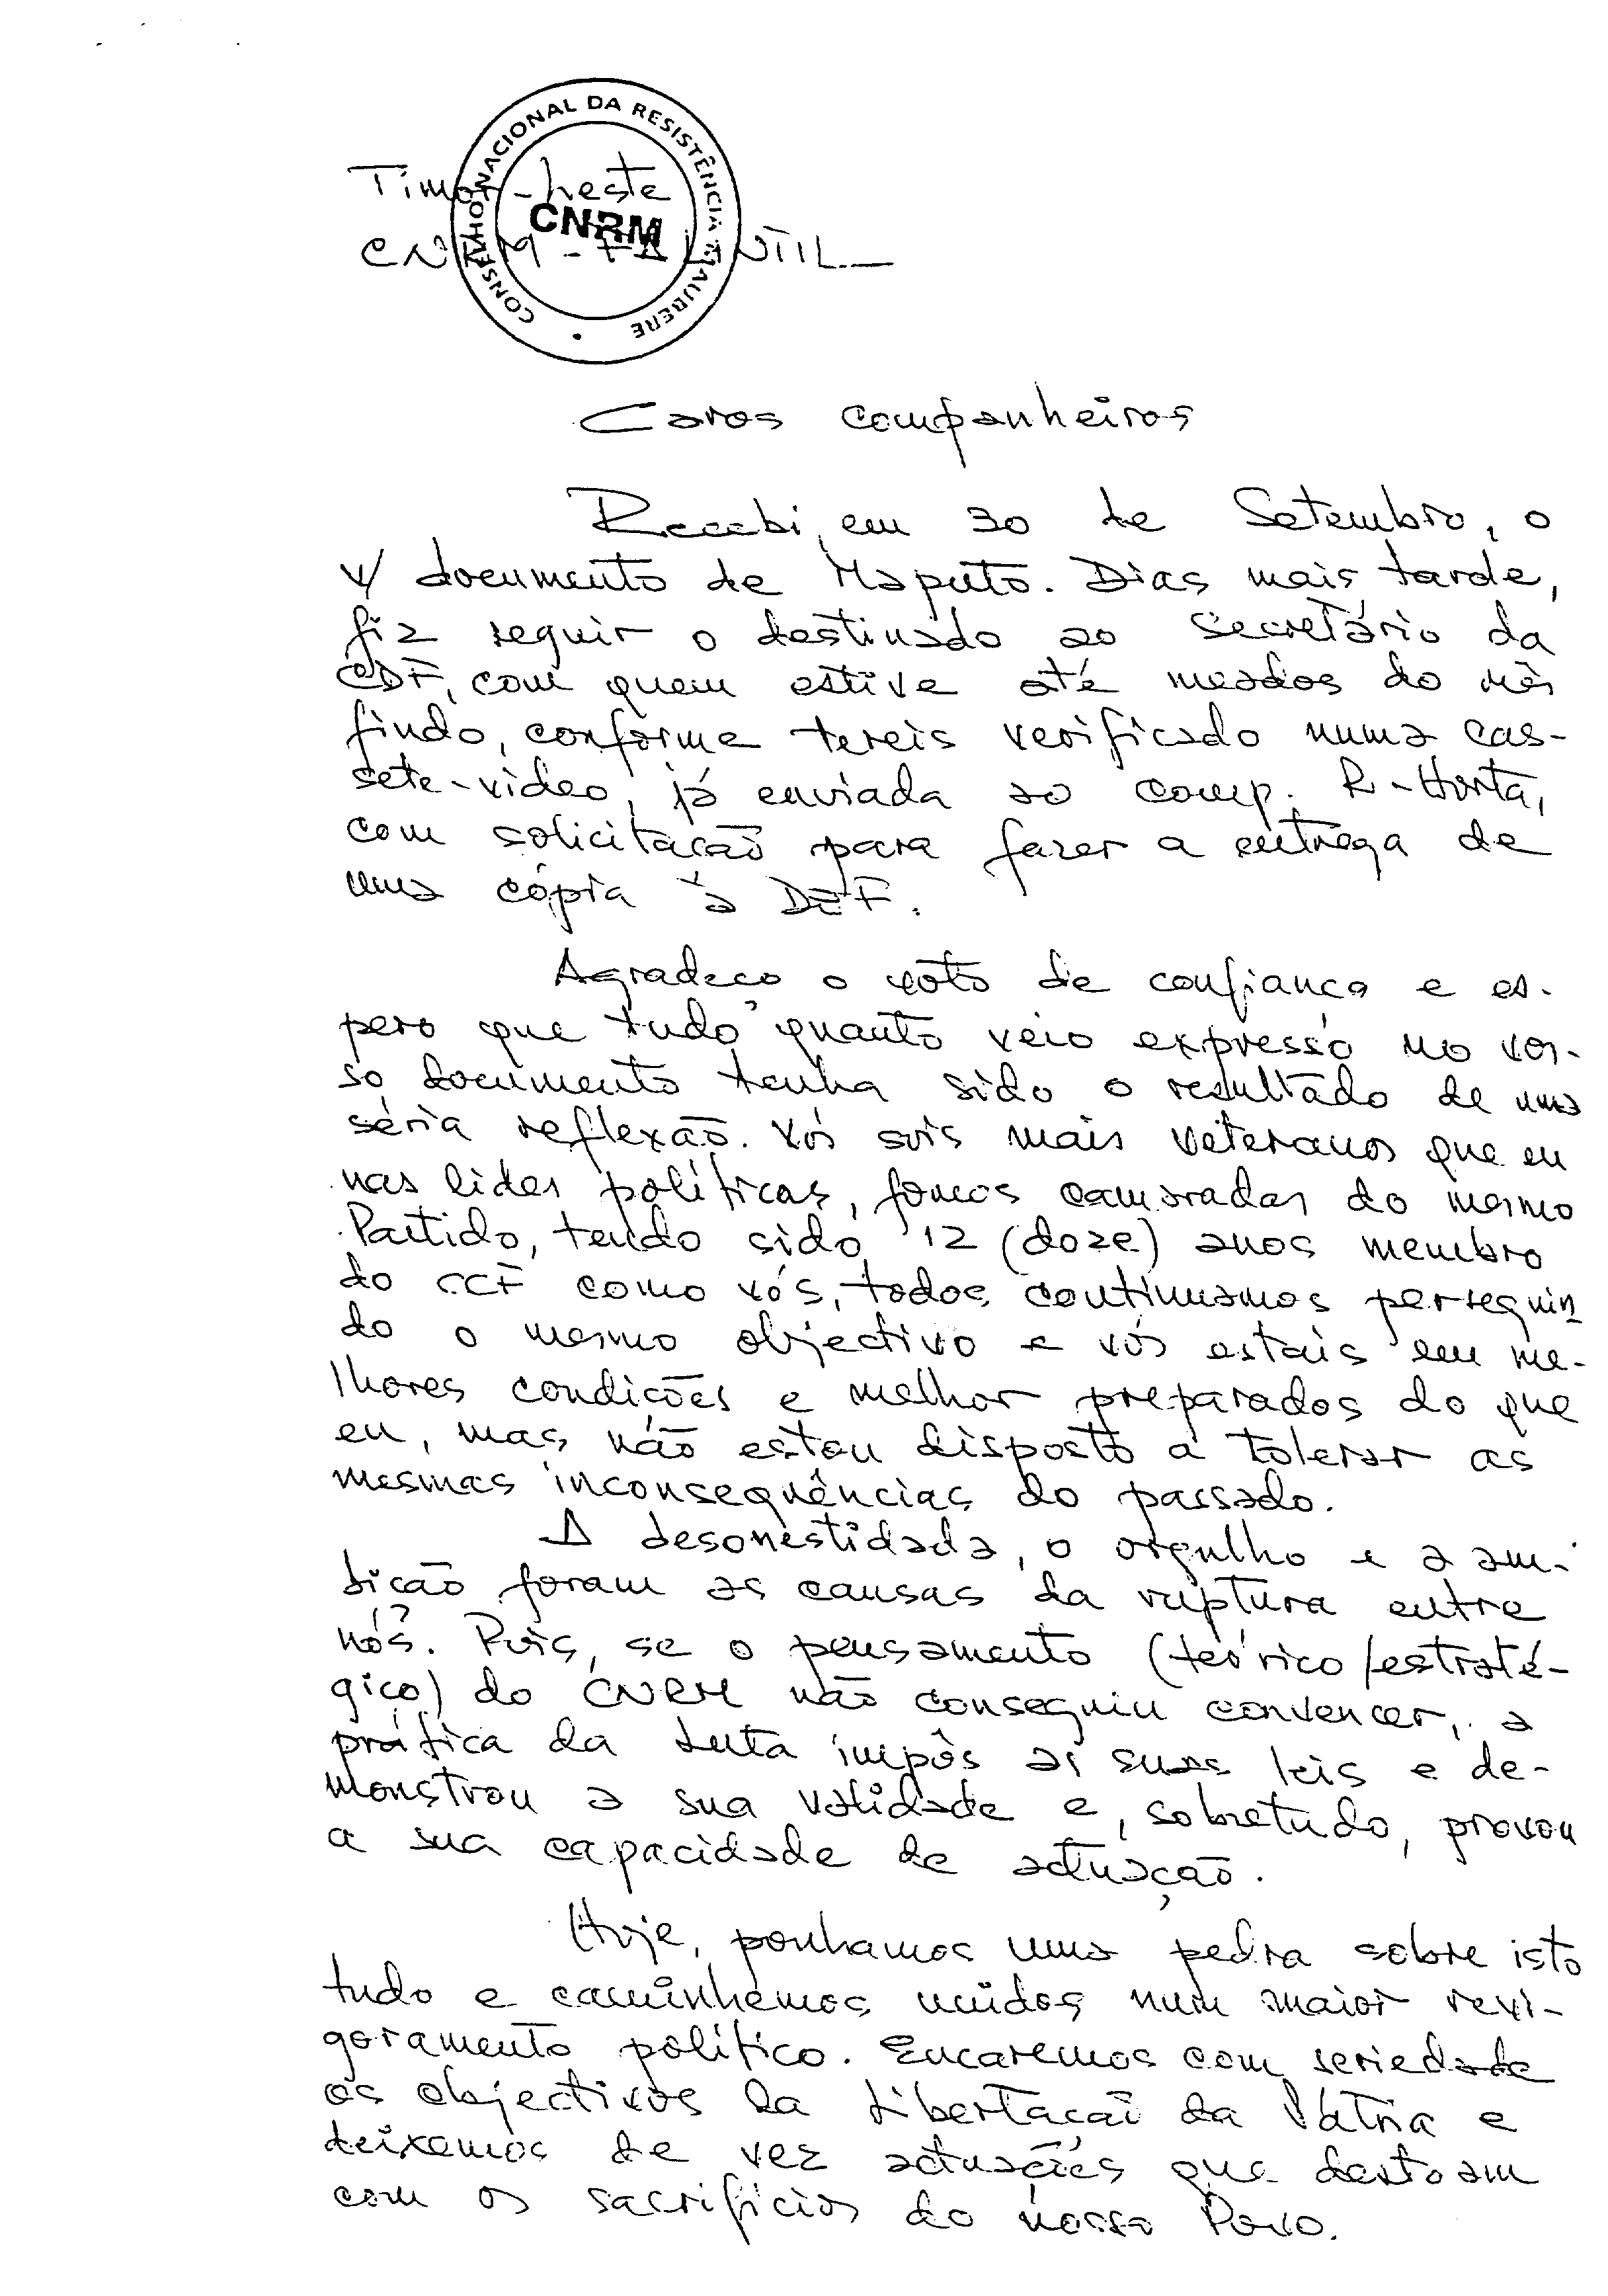 CONSELHO NACIONAL DA RESISTÊNCIA MAUBERE
Timor-Leste
CNRM
CNRM - FALINTIL
Caros companheiros
Recebi, em 30 de Setembro, o
v/ documento de Maputo. Dias mais tarde,
fiz seguir o destinado ao Secretário da
CDF, com quem estive até meados do mês
findo, conforme tereis verificado numa cas-
sete-video, já enviada ao comp. R-Horta,
com solicitação para fazer a entrega de
uma cópia à DEF.
Agradeço o voto de confiança e es-
pero que tudo quanto veio expresso no vos-
so documento tenha sido o resultado de uma
séria reflexão. Vós sois mais veteranos que eu
nas lides políticas, fomos camaradas do mesmo
Partido, tendo sido 12 (doze) anos membro
do CCF como vós, todos continuamos perseguin
do o mesmo objectivo e vós estais em me-
lhores condições e melhor preparados do que
eu, mas não estou disposto a tolerar as
mesmas inconsequências do passado.
A desonestidade, o orgulho e a am-
bição foram as causas da ruptura entre
nós. Pois, se o pensamento (teórico/estraté-
gico) do CNRM não conseguiu convencer, a
prática da Luta impôs as suas leis e de-
monstrou a sua validade e, sobretudo, provou
a sua capacidade de actuação.
Hoje, ponhamos uma pedra sobre isto
tudo e caminhemos unidos num maior revi-
goramento político. Encaremos com seriedade
os objectivos da Libertação da Pátria e
deixemos de vez actuações que destoam
com os sacrifícios do nosso Povo.